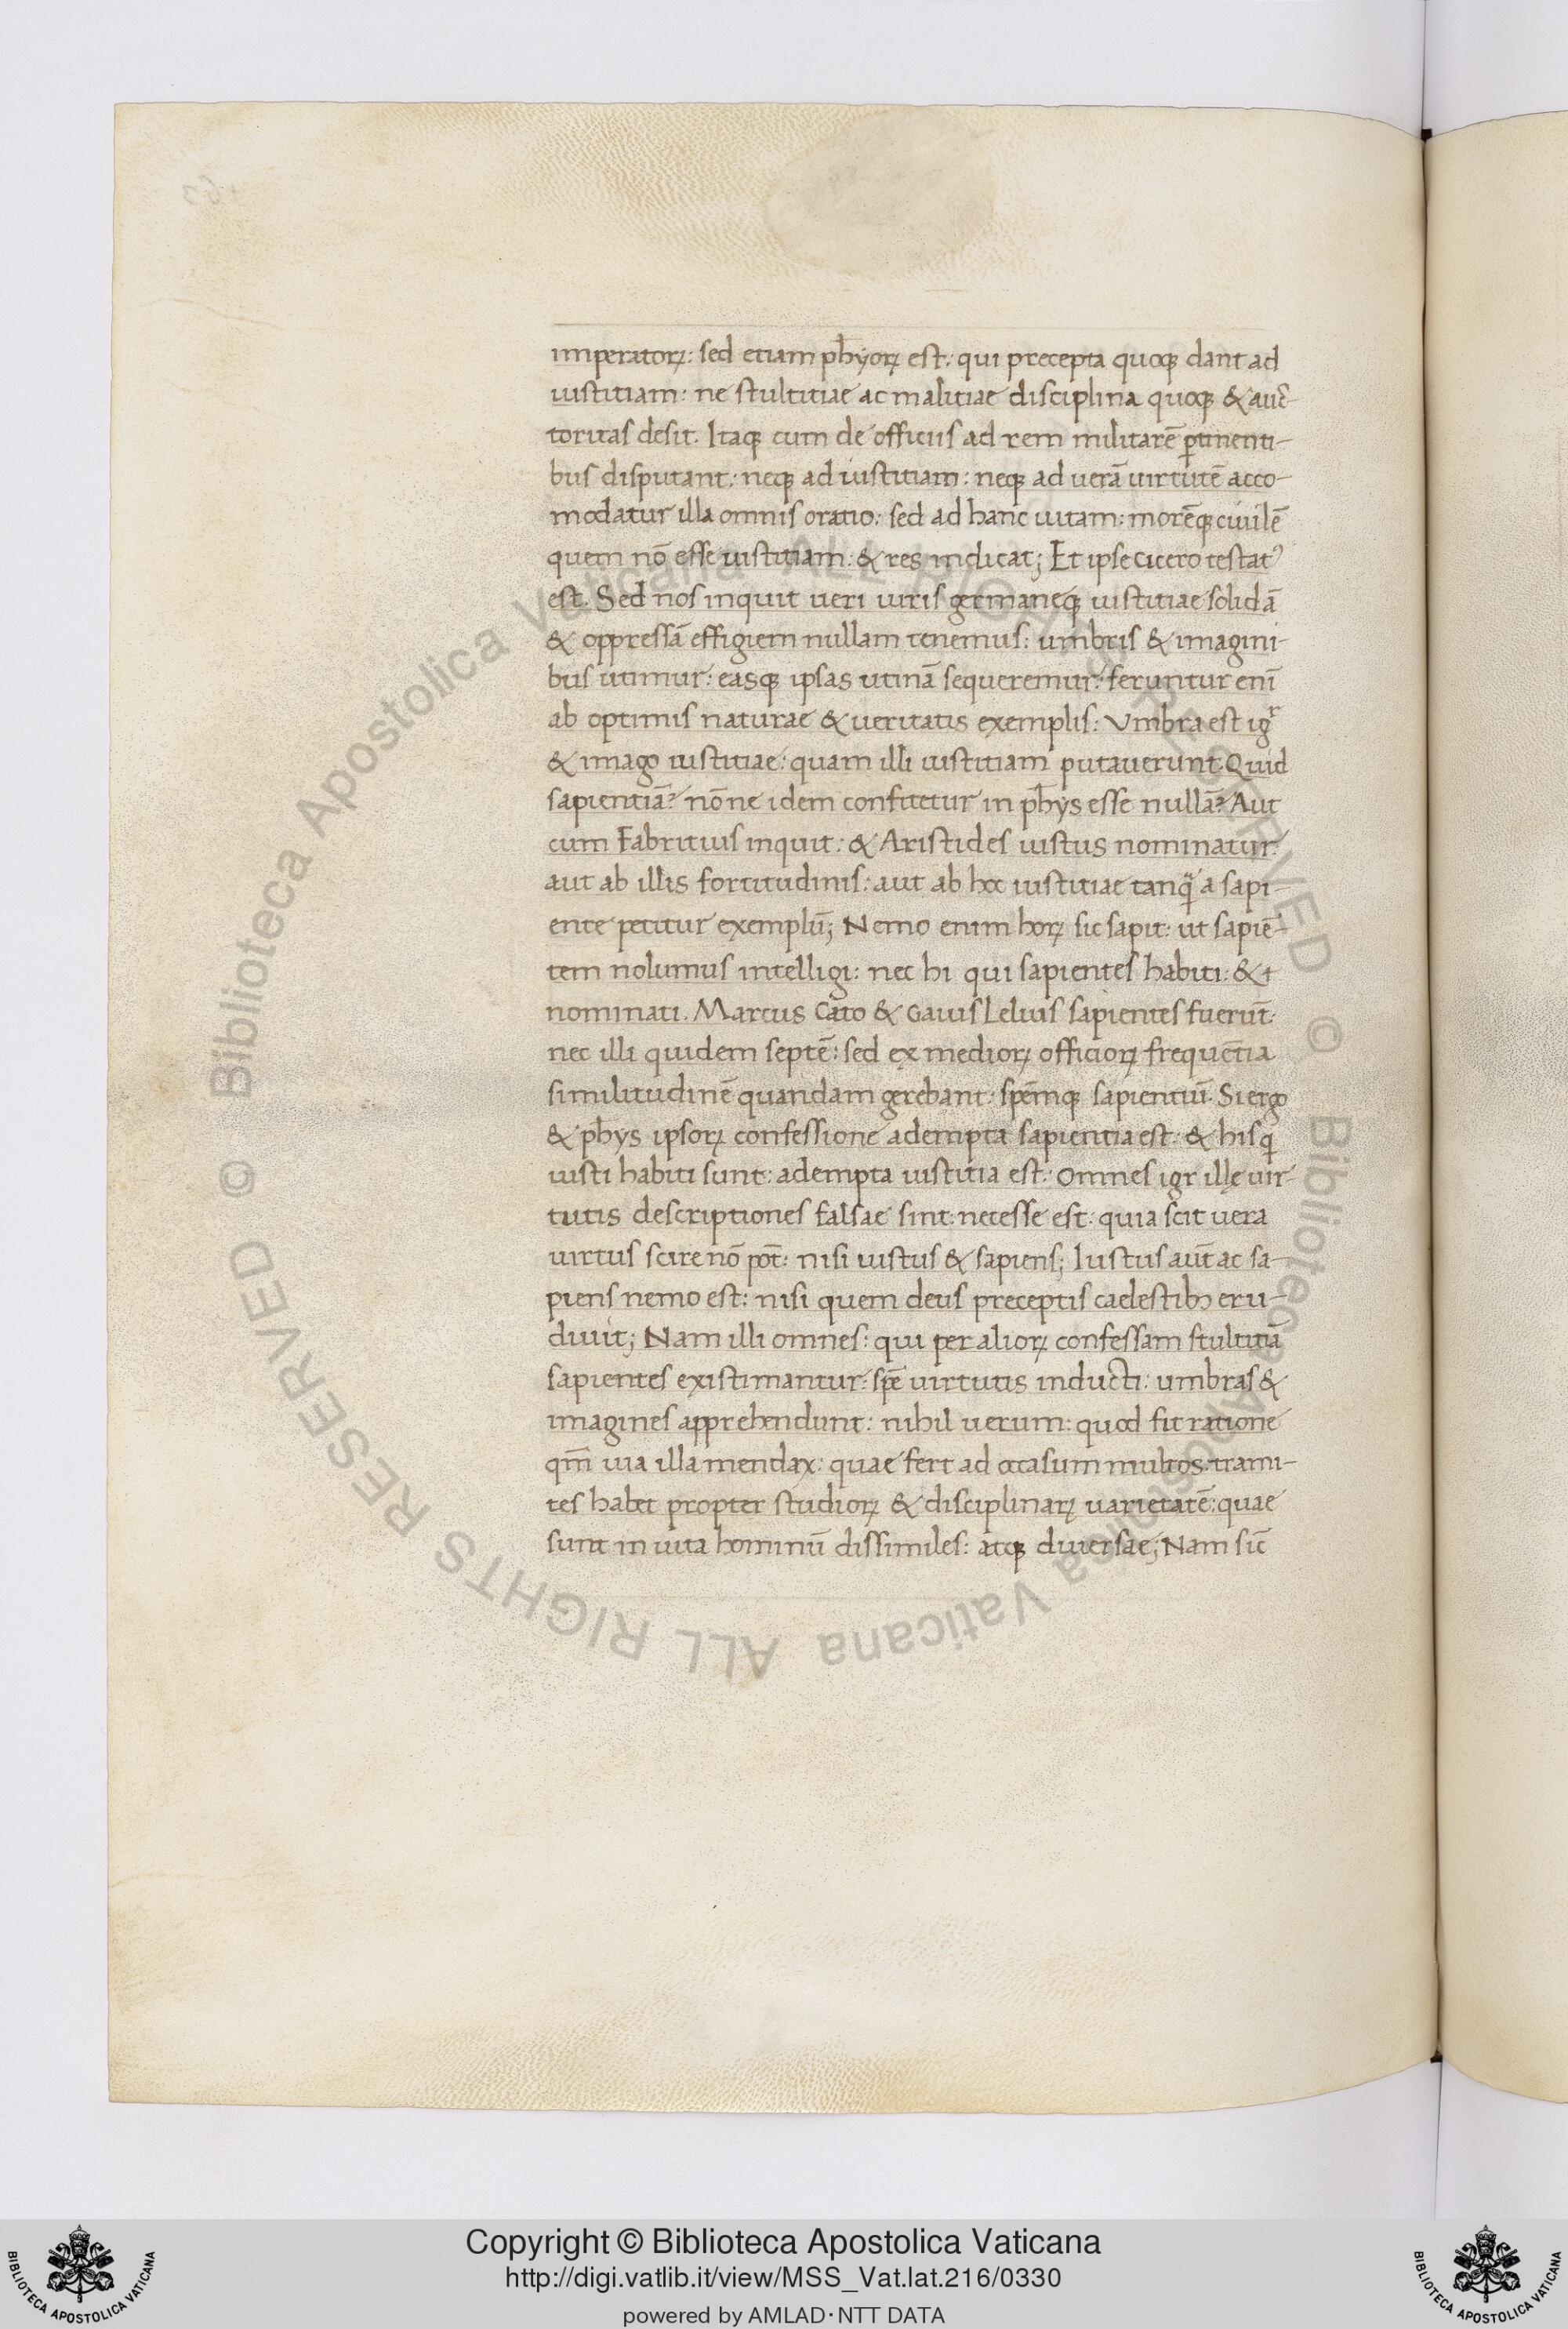 imperatoꝝ: sed etiam ph̄yoꝝ est: qui precepta quoqꝫ dant ad
iustitiam: ne stultitiae ac malitiae disciplina quoqꝫ & auc̄-
toritas desit. Itaqꝫ cum de officiis ad rem militarē ꝑtinenti-
bus disputant: neqꝫ ad iustitiam: neqꝫ ad uerā uirtutē acco-
modatur illa omnis oratio: sed ad hanc uitam: morēqꝫ ciuilē
quem nō esse iustitiam: & res indicat; Et ipse Cicero testatꝰ
est. Sed nos inquit ueri iuris germaneqꝫ iustitiae solidā
& oppressā effigiem nullam tenemus: umbris & imagini-
bus utimur: easqꝫ ipsas utinā sequeremur: feruntur enī
ab optimis naturae & ueritatis exemplis: Vmbra est igr̄
& imago iustitiae: quam illi iustitiam putauerunt. Quid
sapientiā? nōne idem confitetur in ph̄ys esse nullā? Aut
cum Fabritius inquit: & Aristides iustus nominatur:
aut ab illis fortitudinis: aut ab hoc iustitiae tanq̄ a sapi-
ente petitur exemplū; Nemo enim hoꝝ sic sapit: ut sapiē-
tem nolumus intelligi: nec hi qui sapientes habiti: &
nominati. Marcus Cato & Gaius Lelius sapientes fuerūt:
nec illi quidem septē: sed ex medioꝝ officioꝝ frequētia
similitudinē quandam gerebant: spēmqꝫ sapientiū. Si ergo
& ph̄ys ipsoꝝ confessione adempta sapientia est: & his q
iusti habiti sunt: adempta iustitia est: Omnes igr illę uir-
tutis descriptiones falsae sint: necesse est: quia scit uera
uirtus scire nō pōt: nisi iustus & sapiens; Iustus aūt ac sa-
piens nemo est: nisi quem deus preceptis caelestibꝫ eru-
diuit; Nam illi omnes: qui per alioꝝ confessam stultitiā
sapientes existimantur: spē uirtutis inducti: umbras &
imagines apprehendunt: nihil uerum: quod fit ratione
qm̄ uia illa mendax: quae fert ad occasum multos: trami-
tes habet propter studioꝝ & disciplinaꝝ uarietatē: quae
sunt in uita hominū dissimiles: atqꝫ diuersae; Nam sic̄
Copyright © Biblioteca Apostolica Vaticana
http://digi.vatlib.it/view/MSS_Vat.lat.216/0330
powered by AMLAD·NTT DATA
© Biblioteca Apostolica Vaticana ALL RIGHTS RESERVED
© Biblioteca Apostolica Vaticana ALL RIGHTS RESERVED
BIBLIOTECA APOSTOLICA VATICANA
BIBLIOTECA APOSTOLICA VATICANA